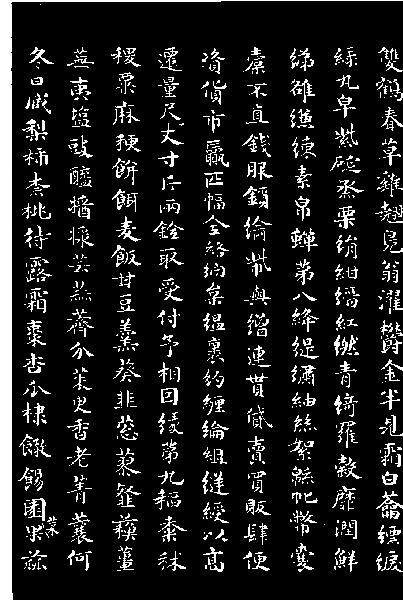 雙鶴春草雞翹鳧翁濯鬱金半見霜白䔕縹綟
綠丸皁紫硟烝栗絹紺縉紅繎青綺羅縠靡潤鮮
綈雒縑練素帛蟬第八絳緹繡紬絲絮綿㠲幣囊
橐不直錢服鎖緰紫與繒連貰貸賣買販肆便
資貨市贏匹幅全綌紵枲縕裹約纏綸組縫綬以高
遷量尺丈寸斤兩銓取受付予相因緣第九稻黍秫
稷粟麻稉餅餌麥飯甘豆羹葵韭蔥蓼䪥蘇薑
蕪荑鹽豉醯醬芸蒜薺介茱臾香老菁蘘何
冬日臧梨柿柰桃待露霜棗杏瓜棣饊餳園菜果蓏